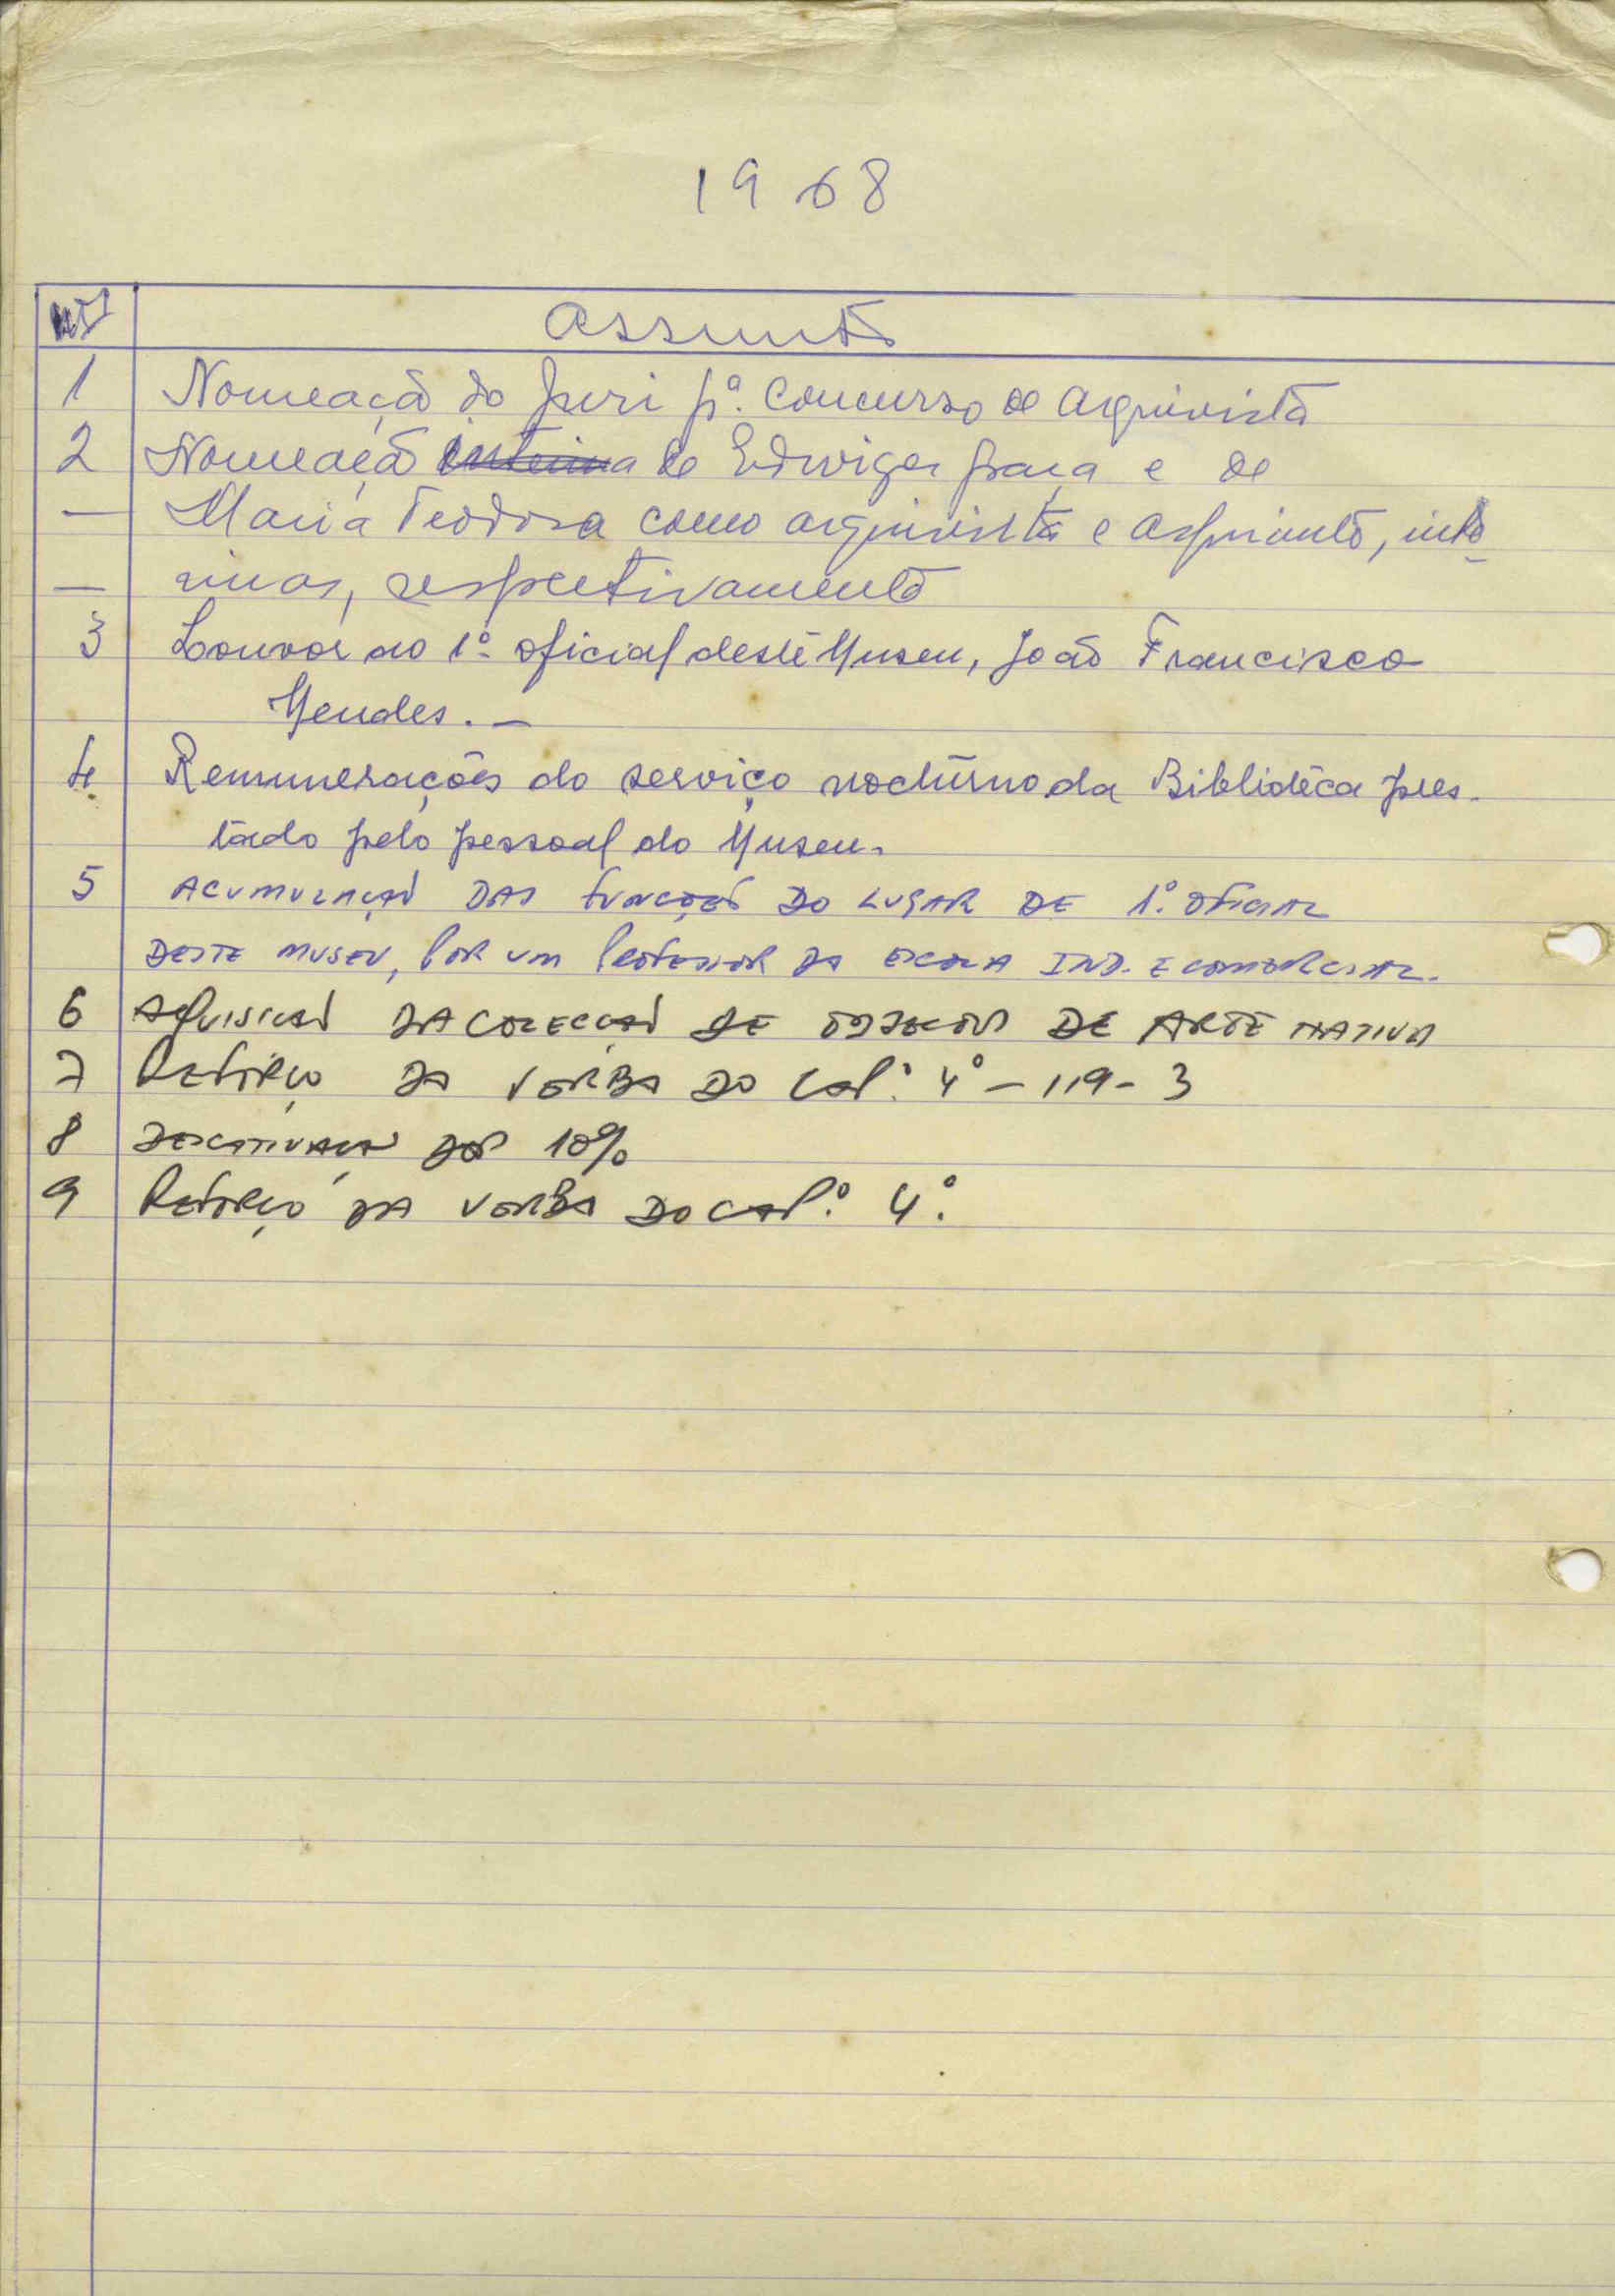 1968
Nº Assunto
1 Nomeação do Juri pª. Concurso de arquivista
2 Nomeação interina de Edwiges Graça e de
— Maria Teodora como arquivista e aspirante, inte-
— rinas, respectivamente
3 Louvor ao 1º oficial deste Museu, João Francisco
Mendes. —
4. Remunerações do serviço nocturno da Biblioteca pres-
tado pelo pessoal do Museu.
5 ACUMULAÇÃO DAS FUNÇÕES DO LUGAR DE 1º. OFICIAL
DESTE MUSEU, POR UM PROFESSOR DA ESCOLA IND. E COMERCIAL.
6 AQUISIÇÃO DA COLECÇÃO DE OBJECTOS DE ARTE NATIVA
7 REFÔRÇO DA VERBA DO CAP.º 4º – 119 – 3
8 DESCATIVAÇÃO DOS 10%
9 REFORÇO DA VERBA DO CAP.º 4º.